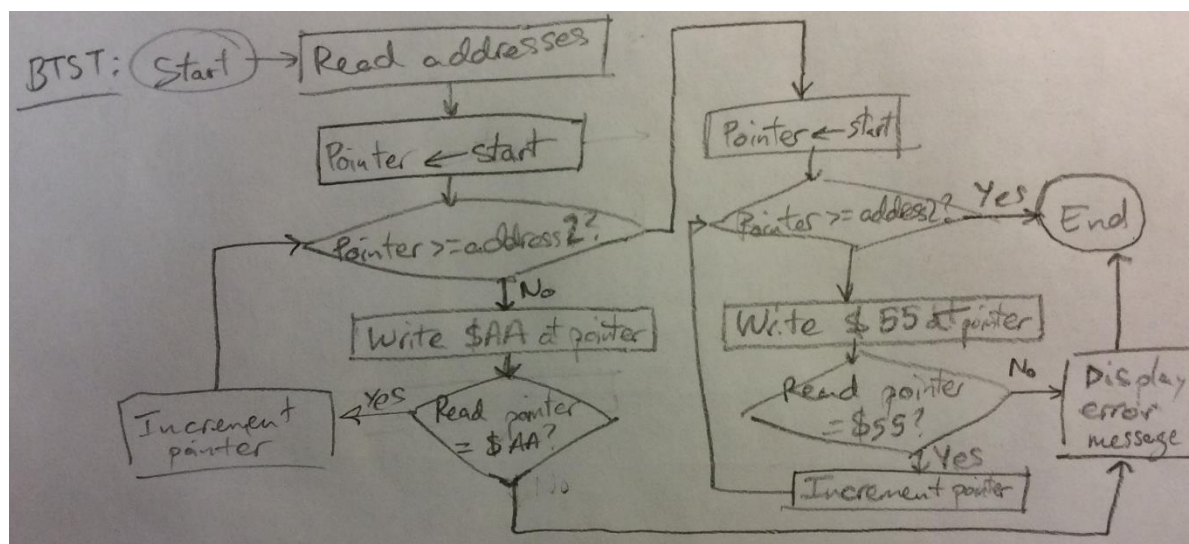 BTST:
Start
Read addresses
Pointer ← start
Pointer >= address2?
No
Write $AA at pointer
Read pointer
= $AA?
Yes
Increment
pointer
No
Pointer ← start
Pointer >= addes2?
Yes
End
Write $55 at pointer
Read pointer
= $55?
No
Display
error
message
Yes
Increment pointer